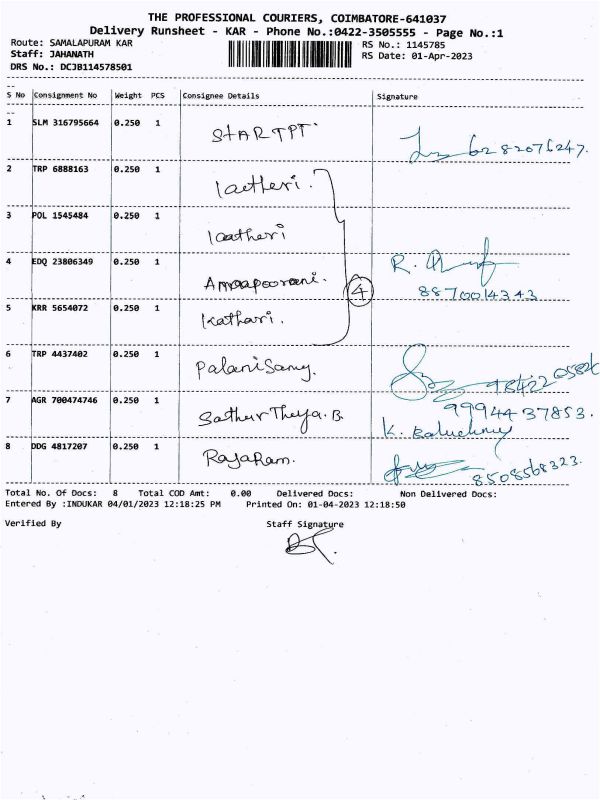 THE PROFESSIONAL COURIERS, COIMBATORE-641037
Delivery Runsheet - KAR - Phone No.:0422-3505555 - Page No.:1
Route: SAMALAPURAM KAR RS No.: 1145785
Staff: JAHANATH RS Date: 01-Apr-2023
DRS No.: DCJB114578501
S No Consignment No Weight PCS Consignee Details Signature
1 SLM 316795664 0.250 1 STAR TPT
6282076247.
2 TRP 6888163 0.250 1 laetheri.
3 POL 1545484 0.250 1 laatheri
4 EDQ 23806349 0.250 1 Amaapoorani. R.
4 8870014343
5 KRR 5654072 0.250 1 Kathari.
6 TRP 4437402 0.250 1 Palanisamy.
7 AGR 700474746 0.250 1 Sathur Theya. B. 9994437853.
K.
8 DDG 4817207 0.250 1 RajaRam.
8508568323.
Total No. Of Docs: 8 Total COD Amt: 0.00 Delivered Docs: Non Delivered Docs:
Entered By :INDUKAR 04/01/2023 12:18:25 PM Printed On: 01-04-2023 12:18:50
Verified By Staff Signature